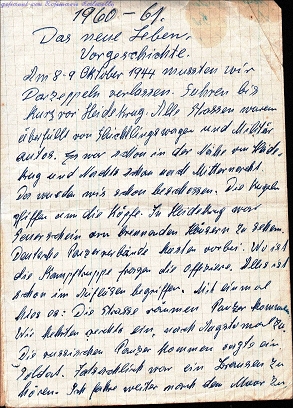 1960-61.
Das neue Leben.
Vorgeschichte.
Am 8-9 Oktober 1944 mussten wir
Parzeppeln verlassen. Fuhren bis
kurs vor Heidekrug. Alle Strassen waren
überfüllt von Flüchtlingswagen und Militär
autos. Es war schon in der Nähe von Heide
krug und Nachts schon nach Mitternacht.
Da wurden wir schon beschossen. Die Kugeln
pfiffen um die Köpfe. In Heidekrug war
Feuerschein von brennenden Häusern zu sehen.
Deutsche Panzerverbände vorbei. Wo ist
die Kampftruppe fragen die Offiziere. Alles ist
schon im Auflösen begriffen. Mit einmal
hies es: Die Strasse räumen Panzer kommen.
Wir kehrten rechts ein nach Augstumal zu.
Die russischen Panzer kommen sagte ein
Soldat. Tatsächlich war ein Brausen zu
hören. Ich fahre weiter nach dem Moor zu